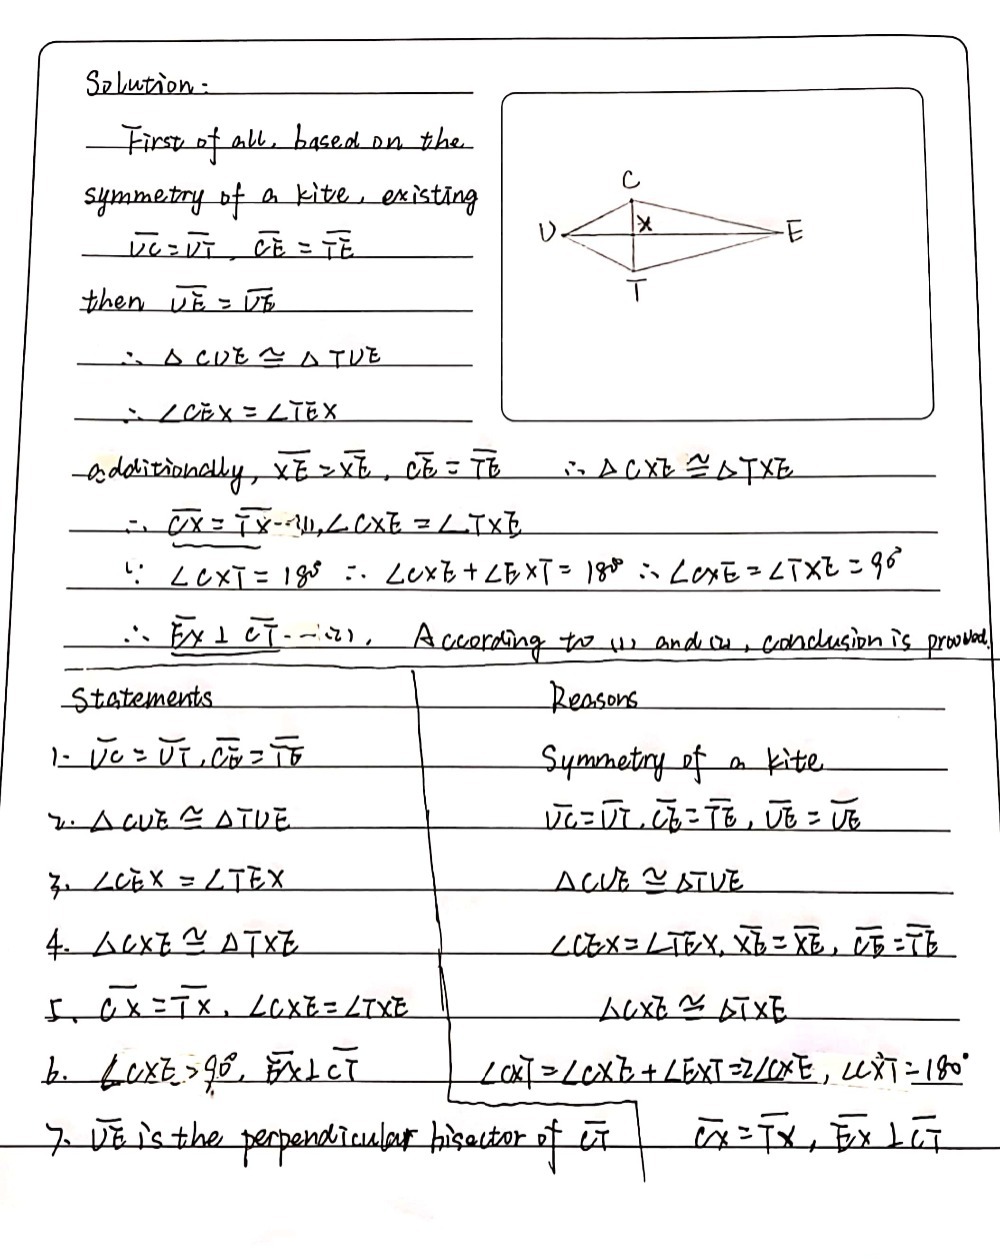 Solution:
First of all, based on the
symmetry of a kite, existing
U̅C̅ = U̅T̅, C̅E̅ = T̅E̅
then U̅E̅ = U̅E̅
∴ △CUE ≅ △TUE
∴ ∠CEX = ∠TEX
additionally, X̅E̅ = X̅E̅, C̅E̅ = T̅E̅ ∴ △CXE ≅ △TXE
∴ C̅X̅ = T̅X̅ --(1), ∠CXE = ∠TXE
∵ ∠CXT = 180° ∴ ∠CXE + ∠EXT = 180° ∴ ∠CXE = ∠TXE = 90°
∴ E̅X̅ ⊥ C̅T̅ --(2). According to (1) and (2), conclusion is prooved.
C
U X E
T
Statements Reasons
1. U̅C̅ = U̅T̅, C̅E̅ = T̅E̅ Symmetry of a kite
2. △CUE ≅ △TUE U̅C̅ = U̅T̅, C̅E̅ = T̅E̅, U̅E̅ = U̅E̅
3. ∠CEX = ∠TEX △CUE ≅ △TUE
4. △CXE ≅ △TXE ∠CEX = ∠TEX, X̅E̅ = X̅E̅, C̅E̅ = T̅E̅
5. C̅X̅ = T̅X̅, ∠CXE = ∠TXE △CXE ≅ △TXE
6. ∠CXE = 90°, E̅X̅ ⊥ C̅T̅ ∠CXT = ∠CXE + ∠EXT = 2∠CXE, ∠CXT = 180°
7. U̅E̅ is the perpendicular bisector of C̅T̅ C̅X̅ = T̅X̅, E̅X̅ ⊥ C̅T̅